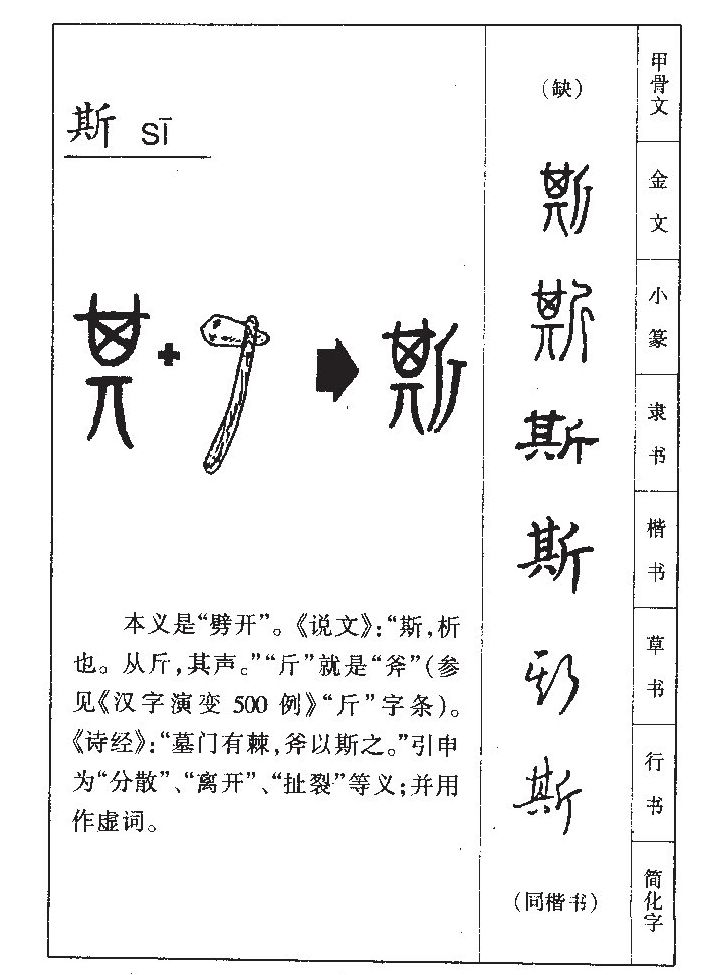 斯 sī
本义是“劈开”。《说文》：“斯，析
也。从斤，其声。”“斤”就是“斧”（参
见《汉字演变 500 例》“斤”字条）。
《诗经》：“墓门有棘，斧以斯之。”引申
为“分散”、“离开”、“扯裂”等义；并用
作虚词。
（缺） 甲骨文
斯 金文
斯 小篆
斯 隶书
斯 楷书
斯 草书
斯 行书
（同楷书） 简化字